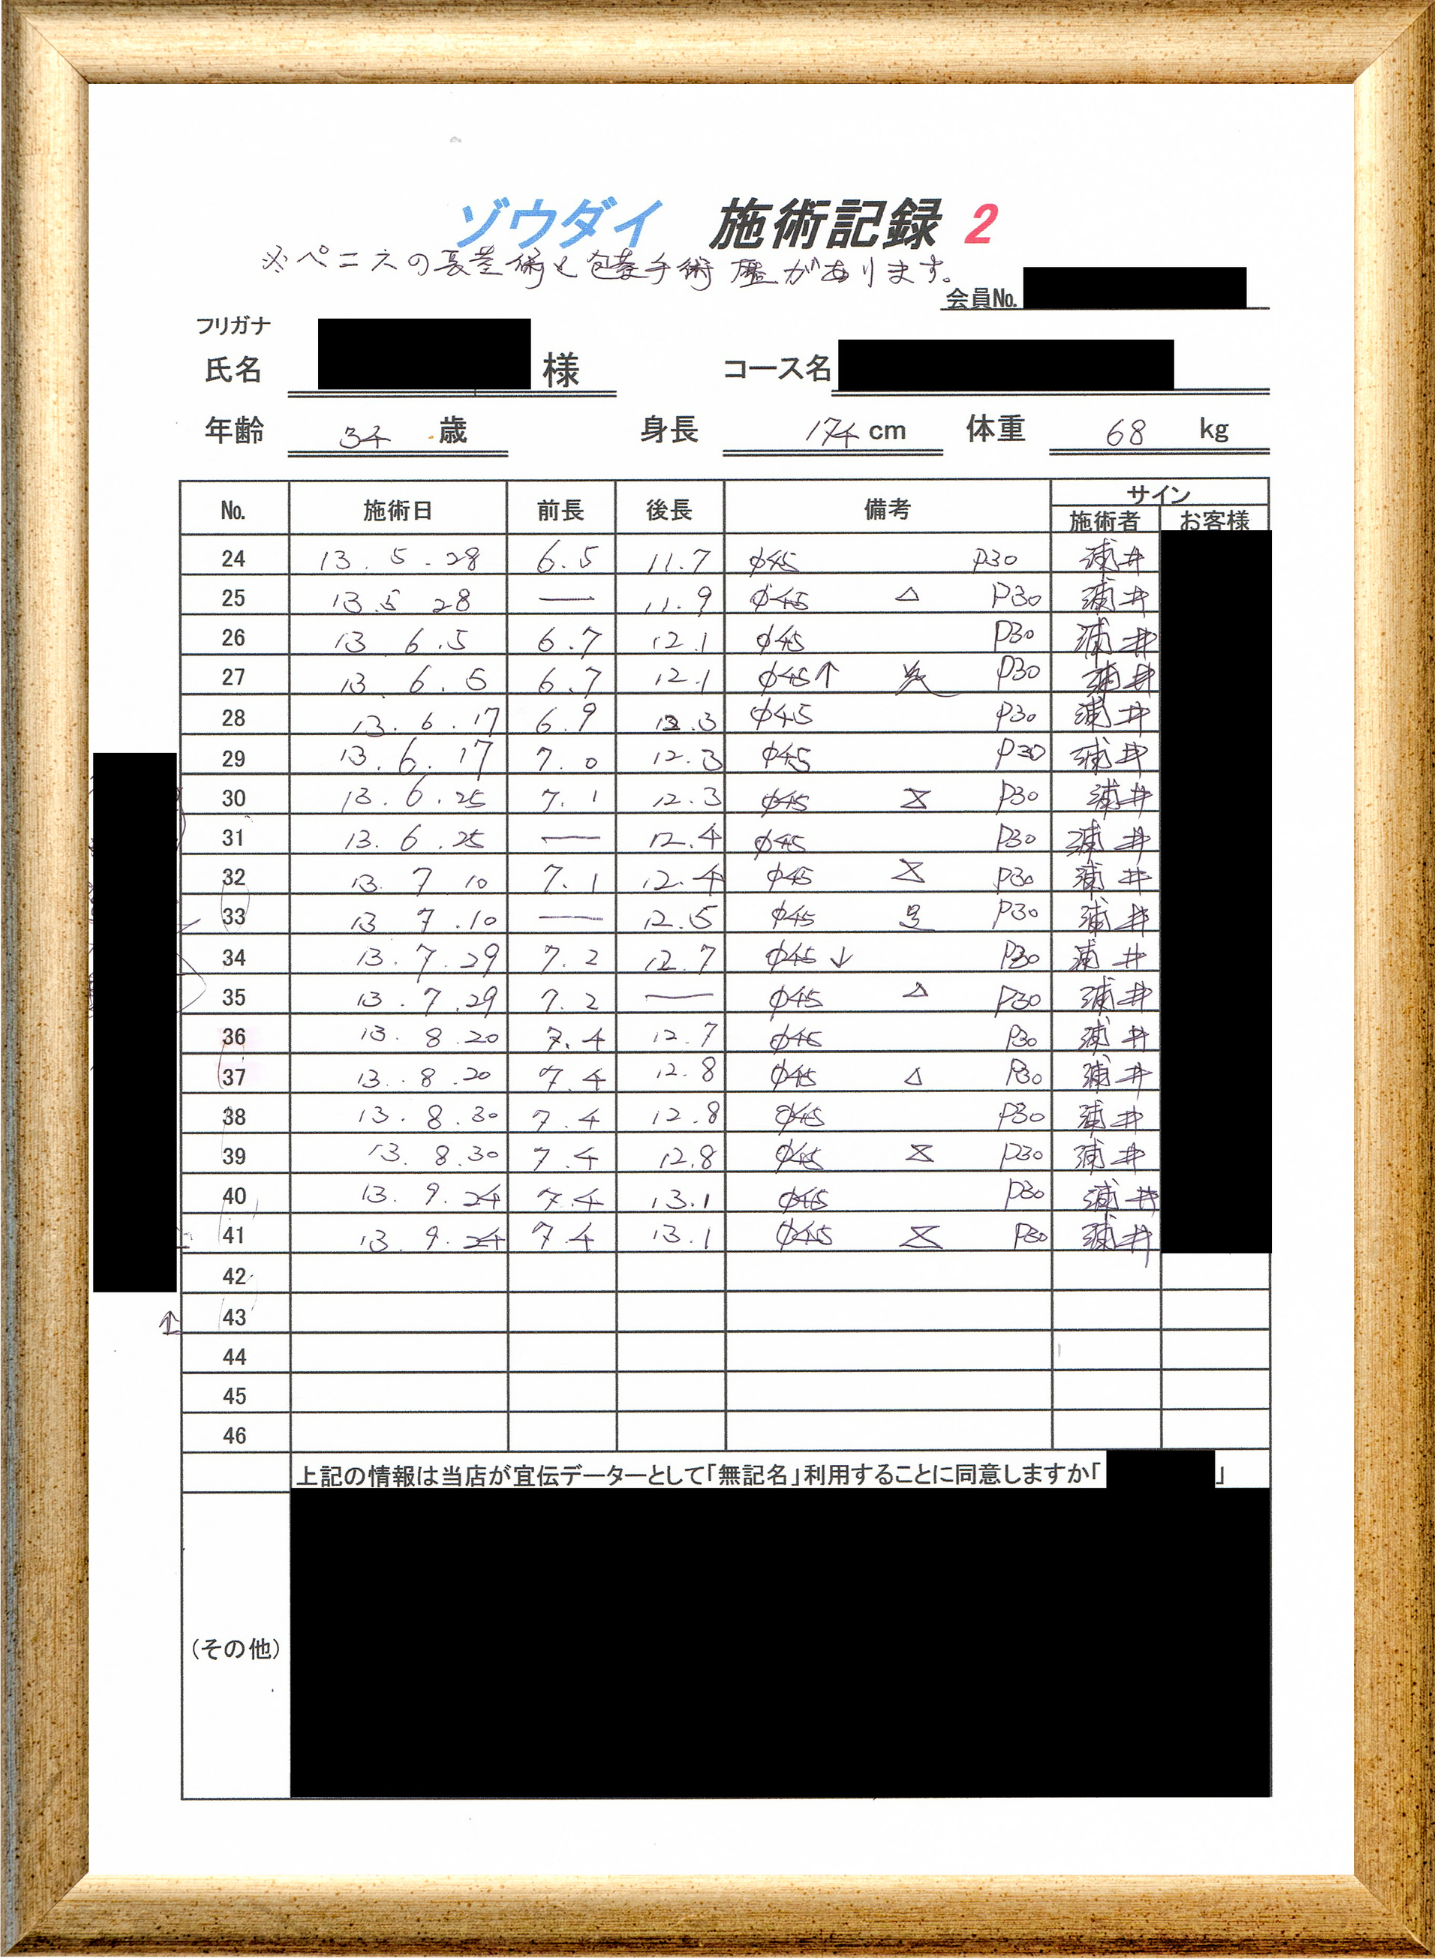 ゾウダイ 施術記録 2
※ペニスの長茎術と包茎手術歴があります。
会員No.
フリガナ
氏名 様 コース名
年齢 34 歳 身長 174 cm 体重 68 kg
No. 施術日 前長 後長 備考 サイン
施術者 お客様
24 13.5.28 6.5 11.7 φ45 P30 浦井
25 13.5 28 — 11.9 φ45 △ P30 浦井
26 13 6.5 6.7 12.1 φ45 P30 浦井
27 13. 6.5 6.7 12.1 φ45↑ P30 浦井
28 13.6.17 6.9 12.3 φ45 P30 浦井
29 13.6.17 7.0 12.3 φ45 P30 浦井
30 13.6.25 7.1 12.3 φ45 P30 浦井
31 13.6.25 — 12.4 φ45 P30 浦井
32 13.7 10 7.1 12.4 φ45 P30 浦井
33 13 7.10 — 12.5 φ45 P30 浦井
34 13.7.29 7.2 12.7 φ45↓ P30 浦井
35 13.7.29 7.2 — φ45 △ P30 浦井
36 13.8.20 7.4 12.7 φ45 P30 浦井
37 13.8.20 7.4 12.8 φ45 △ P30 浦井
38 13.8.30 7.4 12.8 φ45 P30 浦井
39 13.8.30 7.4 12.8 φ45 P30 浦井
40 13.9.24 7.4 13.1 φ45 P30 浦井
41 13.9.24 7.4 13.1 φ45 P30 浦井
42
43
44
45
46
上記の情報は当店が宣伝データーとして「無記名」利用することに同意しますか「 」
(その他)